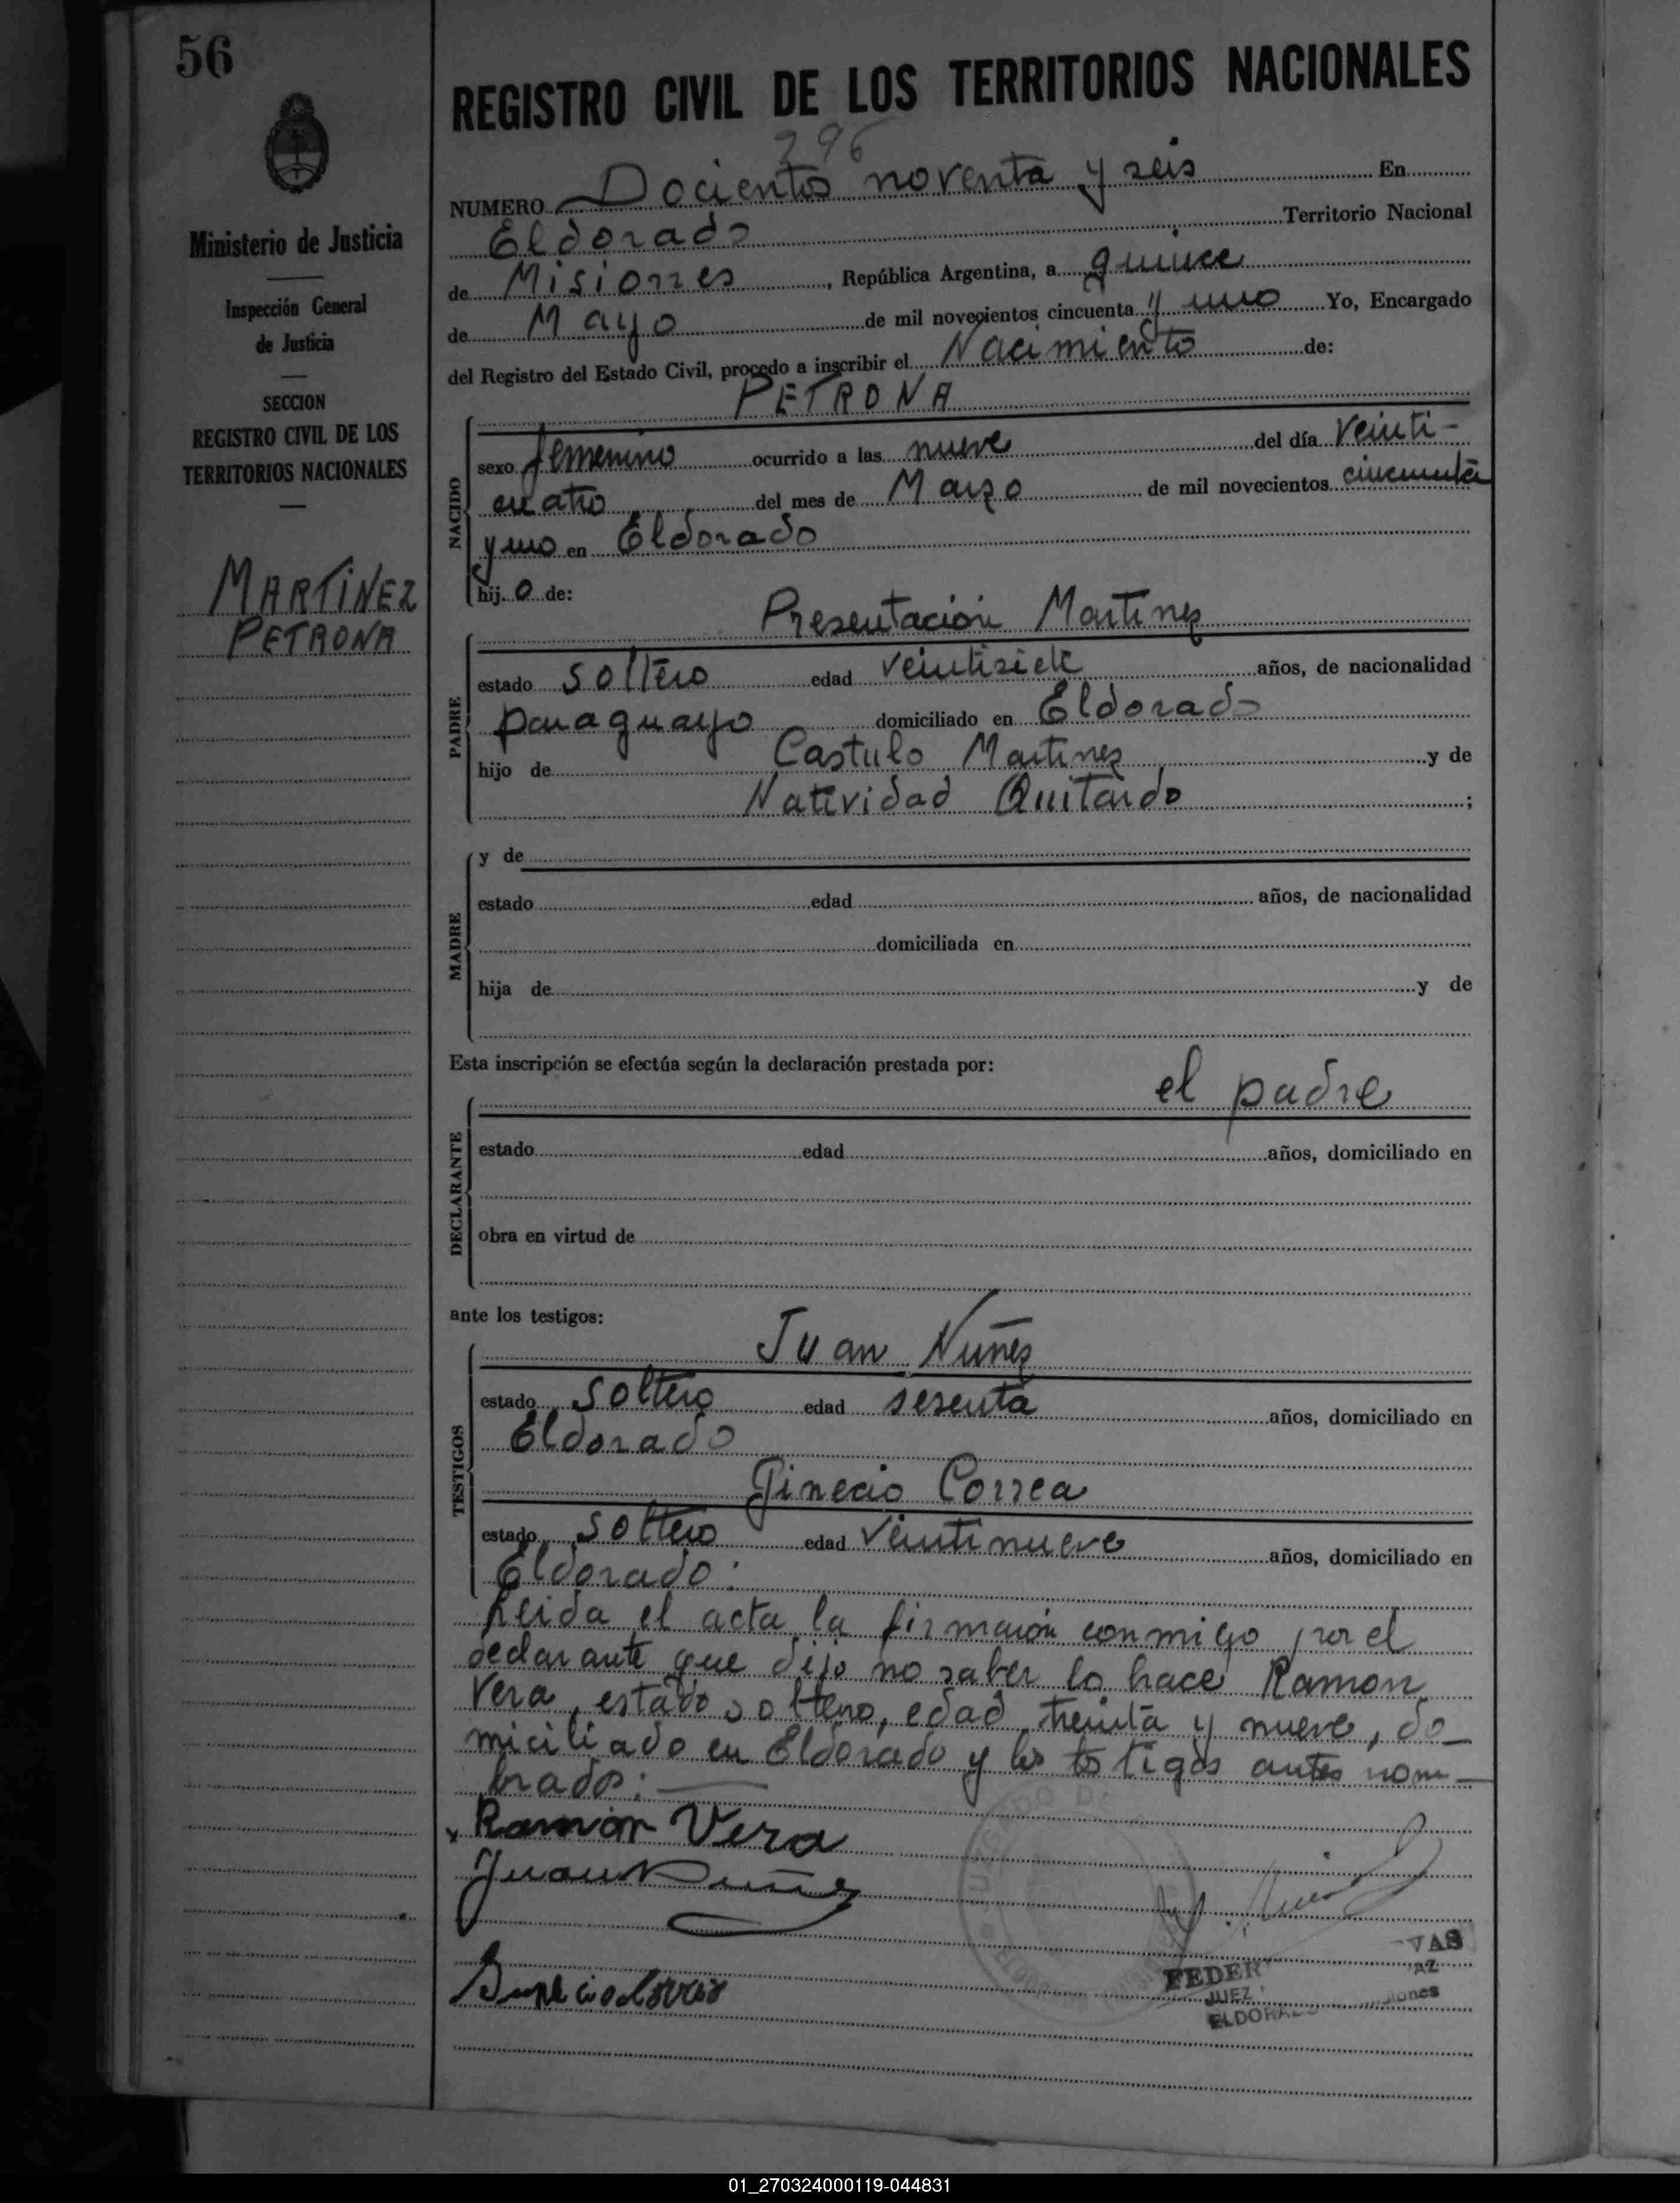 56
REGISTRO CIVIL DE LOS TERRITORIOS NACIONALES
296
NUMERO Docientos noventa y seis En
Eldorado Territorio Nacional
de Misiones, República Argentina, a quince
de Mayo de mil novecientos cincuenta y uno Yo, Encargado
del Registro del Estado Civil, procedo a inscribir el Nacimiento de:
PETRONA
NACIDO
sexo femenino ocurrido a las nueve del día veinti-
cuatro del mes de Marzo de mil novecientos cincuenta
y uno en Eldorado
hij o de:
Presentación Martinez
PADRE
estado soltero edad veintisiete años, de nacionalidad
paraguayo domiciliado en Eldorado
hijo de Castulo Martinez y de
Natividad ;
MADRE
y de
estado edad años, de nacionalidad
domiciliada en
hija de y de
Esta inscripción se efectúa según la declaración prestada por:
el padre
DECLARANTE
estado edad años, domiciliado en
obra en virtud de
ante los testigos:
Juan Nuñez
TESTIGOS
estado soltero edad sesenta años, domiciliado en
Eldorado
Correa
estado soltero edad veintinueve años, domiciliado en
Eldorado:
Leida el acta la firmaron conmigo por el
declarante que dijo no saber lo hace Ramon
Vera, estado soltero, edad treinta y nueve, do-
miciliado en Eldorado y los testigos antes nom-
brados:
Ramón Vera
Juan Nuñez
FEDER
VAS
JUEZ
AZ
ELDORADO
iones
Ministerio de Justicia
Inspección General
de Justicia
SECCION
REGISTRO CIVIL DE LOS
TERRITORIOS NACIONALES
MARTINEZ
PETRONA
01_270324000119-044831